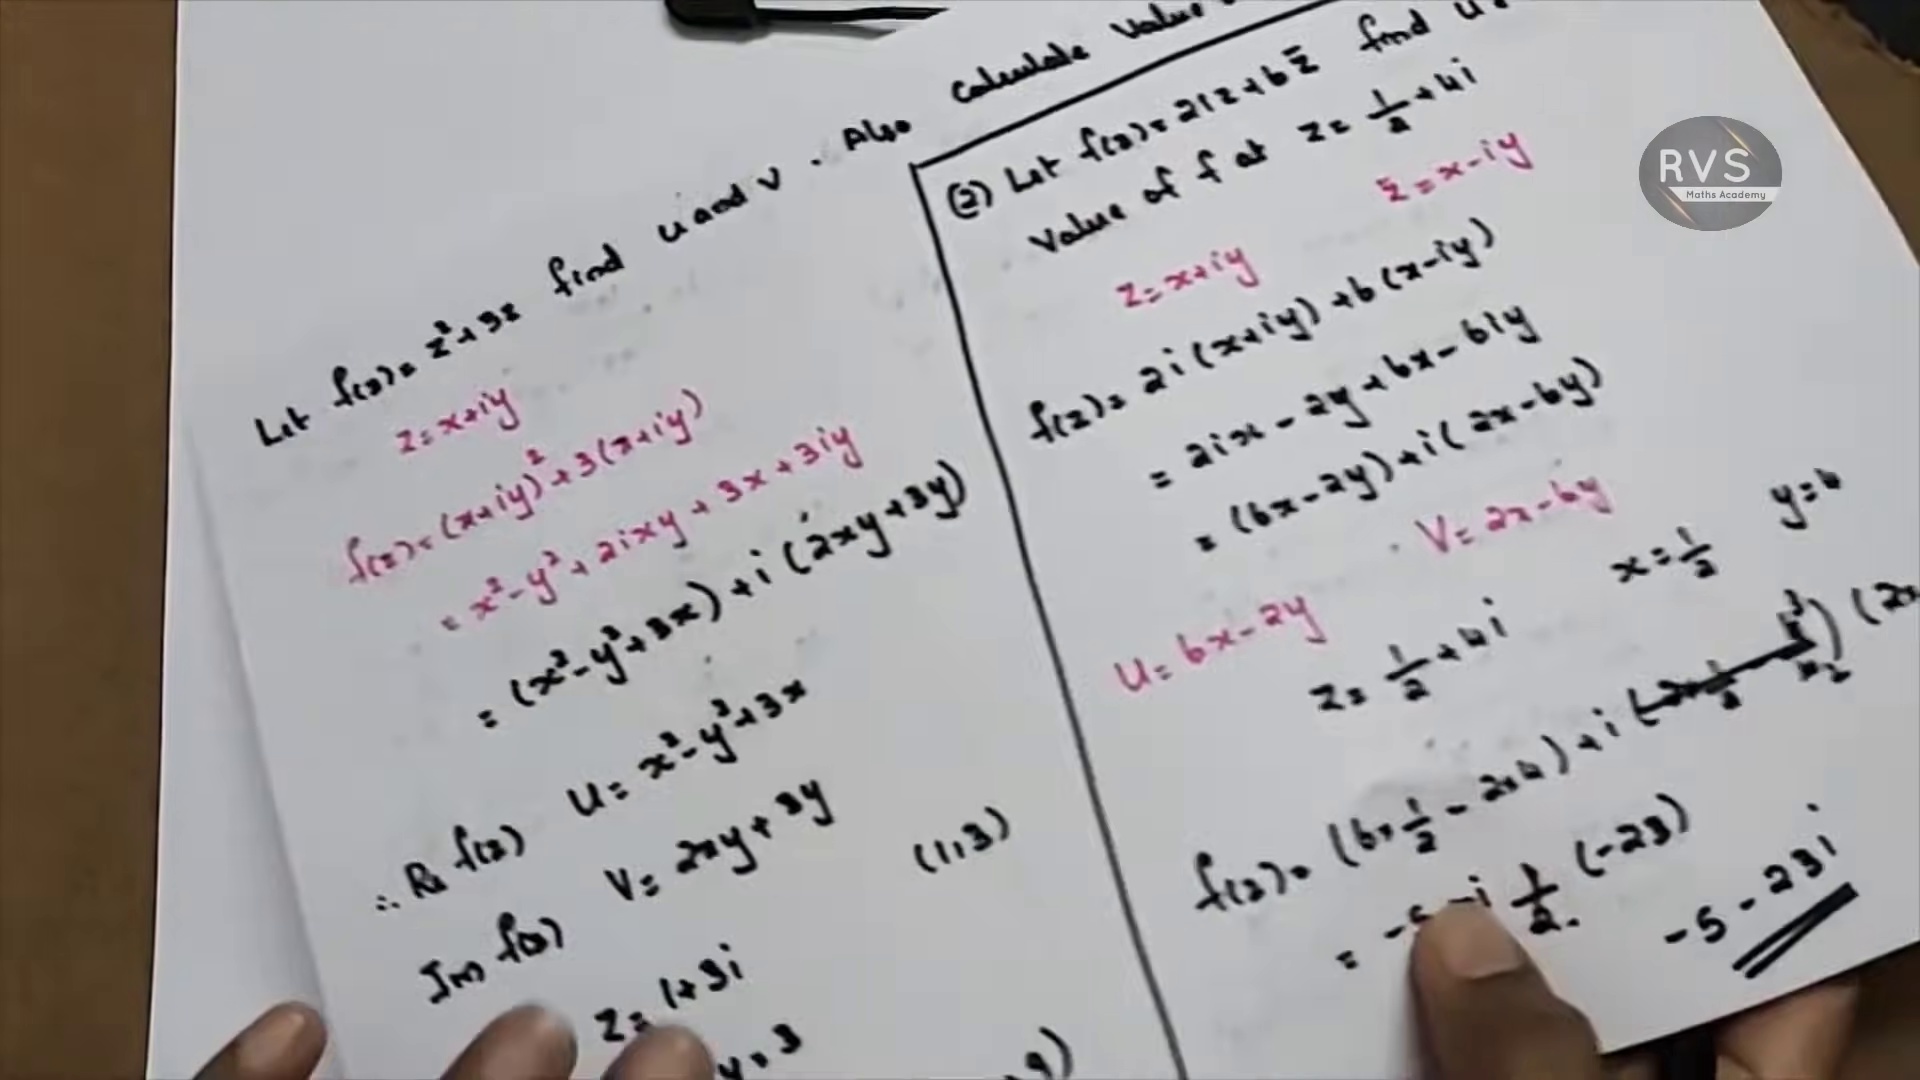 Let f(z) = z²+3z find u and v. Also Calculate value
z = x+iy
f(z) = (x+iy)²+3(x+iy)
= x²-y²+2ixy+3x+3iy
= (x²-y²+3x)+i(2xy+3y)
∴ Re f(z) u = x²-y²+3x
Im f(z) v = 2xy+3y (1,3)
z = 1+3i
y=3
(2) Let f(z) = 2iz+6z̄ find u
Value of f at z = 1/2+4i
z = x+iy z̄ = x-iy
f(z) = 2i(x+iy)+6(x-iy)
= 2ix-2y+6x-6iy
= (6x-2y)+i(2x-6y)
u = 6x-2y v = 2x-6y
z = 1/2+4i x = 1/2 y=4
f(z) = (6×1/2-2×4)+i (2×
= -5 -i 1/2. (-23)
-5-23i
RVS
Maths Academy